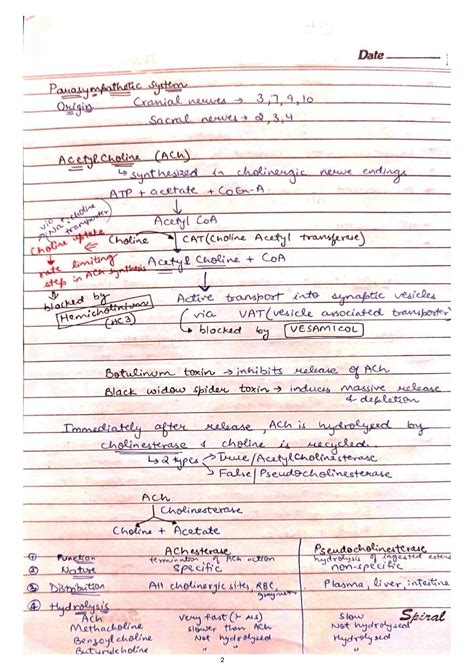 Date
Parasympathetic System
Origin Cranial nerves → 3,7,9,10
Sacral nerves → 2,3,4
AcetylCholine (ACh)
↳ synthesized in cholinergic nerve endings
ATP + acetate + CoEn-A
via Na+ choline transporter
Acetyl CoA
Choline uptake
Choline CAT (Choline Acetyl transferase)
rate limiting step in ACh synthesis
Acetyl Choline + CoA
blocked by
Hemicholinium (HC3)
Active transport into synaptic vesicles
via VAT (vesicle associated transporter)
↳ blocked by VESAMICOL
Botulinum toxin → inhibits release of ACh
Black widow spider toxin → induces massive release
& depletion
Immediately after release, ACh is hydrolysed by
cholinesterase & choline is recycled.
↳ 2 types → True/AcetylCholinesterase
→ False/Pseudocholinesterase
ACh
Cholinesterase
Choline + Acetate
AChesterase Pseudocholinesterase
① Function termination of ACh action hydrolysis of ingested esters
② Nature Specific non-specific
③ Distribution All cholinergic sites, RBC, Plasma, liver, intestine
④ Hydrolysis
ACh very fast (> μs) Slow
Methacholine slower than ACh Not hydrolysed
Benzoylcholine Not hydrolysed Hydrolysed
Butyrylcholine " "
Spiral
2